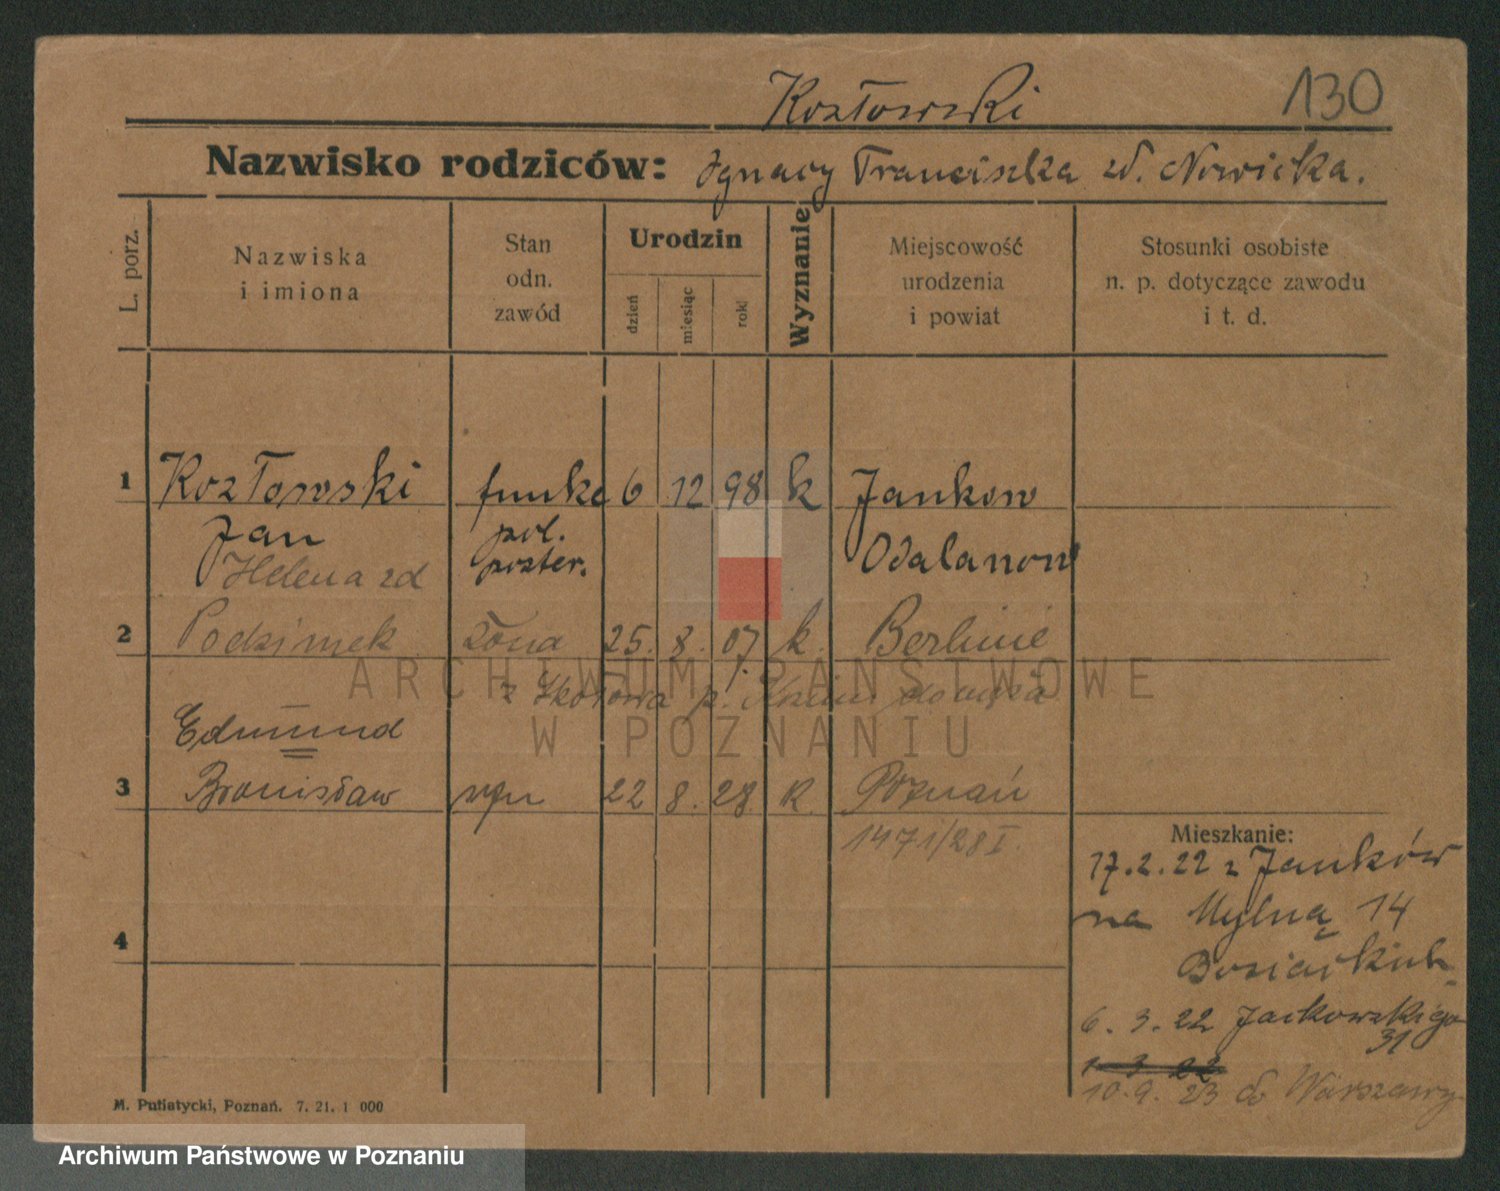 Kozłowski 130
Nazwisko rodziców: Ignacy Franciszka zd. Nowicka.
L. porz.
Nazwiska
i imiona
Stan
odn.
zawód
Urodzin
dzień
miesiąc
rok
Wyznanie
Miejscowość
urodzenia
i powiat
Stosunki osobiste
n. p. dotyczące zawodu
i t. d.
1 Kozłowski funkc 6 12 98 k Jankow
Jan pol. Odalanow
Helena zd poster.
2 Podzimek żona 25. 8. 07 k. Berlinie
z p.
Edmund
3 Bronisław syn 22 8. 28 k Poznań
1471/28 I.
Mieszkanie:
17.2.22 z Janków
na Mylną 14
4
6. 3. 22 Jackowskiego
31
1 3 22
10. 9. 23 do Warszawy
M. Putiatycki, Poznań. 7. 21. 1 000
ARCHIWUM PAŃSTWOWE
W POZNANIU
Archiwum Państwowe w Poznaniu